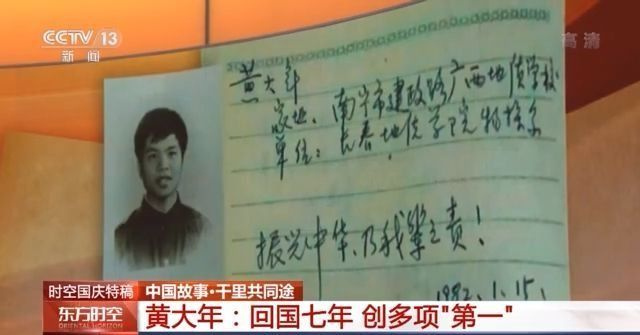 CCTV 13
新闻
高清
黄大年
家址：南宁市建政路广西地质学校
单位：长春地质学院物探系
振兴中华，乃我辈之责！
1982.1.15.
时空国庆特稿
中国故事·千里共同途
东方时空
ORIENTAL HORIZON
黄大年：回国七年 创多项"第一"